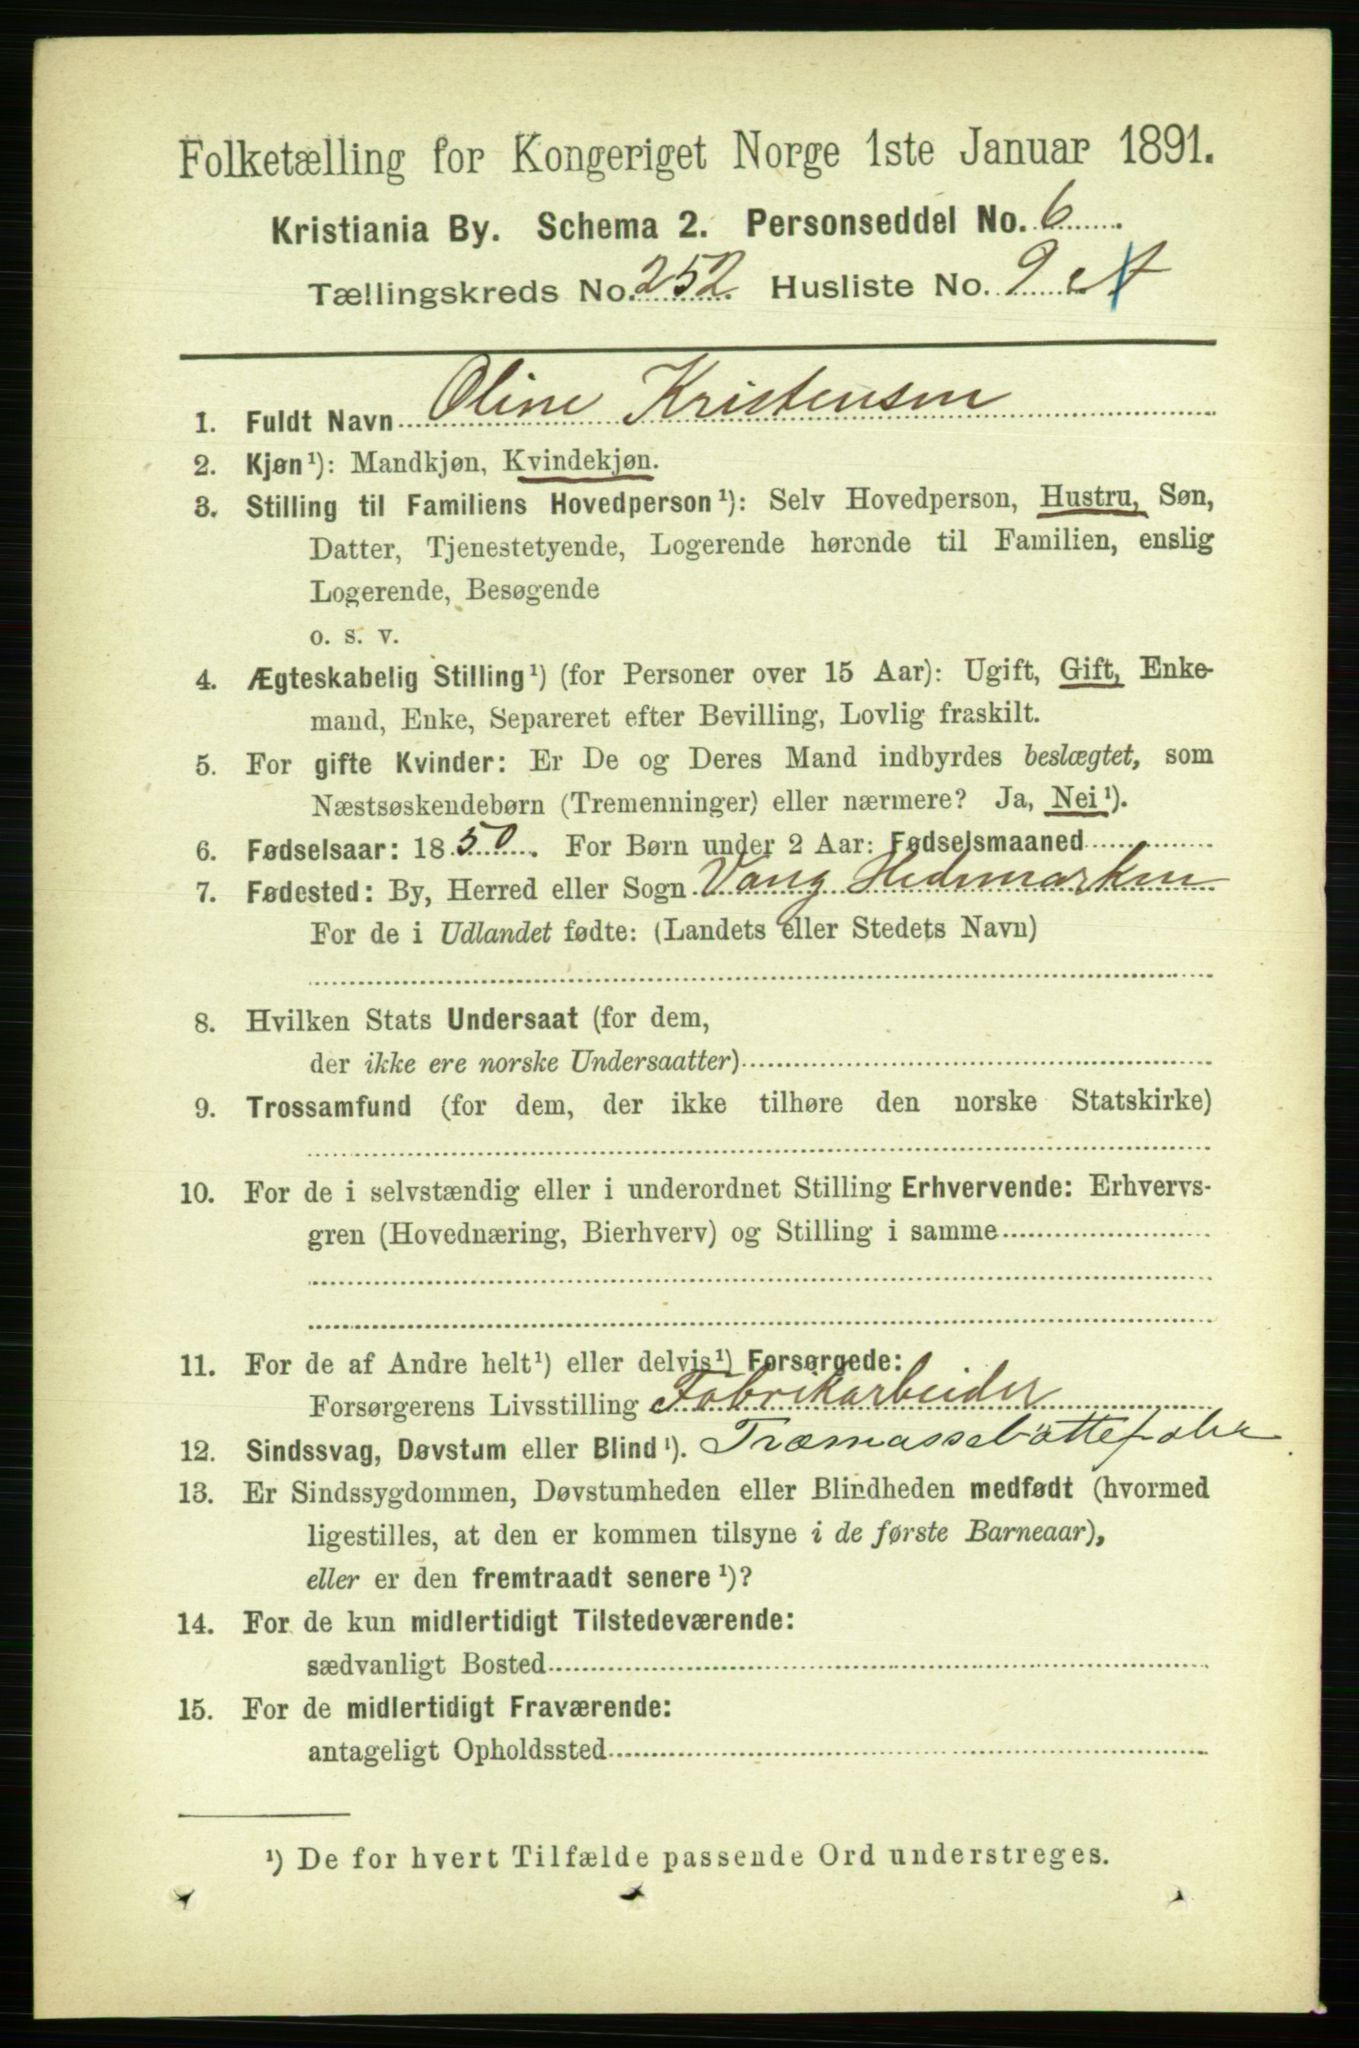 Folketælling for Kongeriget Norge 1ste Januar 1891.
Kristiania By. Schema 2. Personseddel No. 6
Tællingskreds No. 252. Husliste No. 9
1. Fuldt Navn Oline Kristensen
2. Kjøn¹): Mandkjøn, Kvindekjøn.
3. Stilling til Familiens Hovedperson¹): Selv Hovedperson, Hustru, Søn,
Datter, Tjenestetyende, Logerende hørende til Familien, enslig
Logerende, Besøgende
o. s. v.
4. Ægteskabelig Stilling¹) (for Personer over 15 Aar): Ugift, Gift, Enke-
mand, Enke, Separeret efter Bevilling, Lovlig fraskilt.
5. For gifte Kvinder: Er De og Deres Mand indbyrdes beslægtet, som
Næstsøskendebørn (Tremenninger) eller nærmere? Ja, Nei¹).
6. Fødselsaar: 1850. For Børn under 2 Aar: Fødselsmaaned
7. Fødested: By, Herred eller Sogn Vang Hedemarken
For de i Udlandet fødte: (Landets eller Stedets Navn)
8. Hvilken Stats Undersaat (for dem,
der ikke ere norske Undersaatter)
9. Trossamfund (for dem, der ikke tilhøre den norske Statskirke)
10. For de i selvstændig eller i underordnet Stilling Erhvervende: Erhvervs-
gren (Hovednæring, Bierhverv) og Stilling i samme
11. For de af Andre helt¹) eller delvis¹) Forsørgede:
Forsørgerens Livsstilling Fabrikarbeider
12. Sindssvag, Døvstum eller Blind¹). Træmassebøttefabr.
13. Er Sindssygdommen, Døvstumheden eller Blindheden medfødt (hvormed
ligestilles, at den er kommen tilsyne i de første Barneaar),
eller er den fremtraadt senere¹)?
14. For de kun midlertidigt Tilstedeværende:
sædvanligt Bosted
15. For de midlertidigt Fraværende:
antageligt Opholdssted
¹) De for hvert Tilfælde passende Ord understreges.